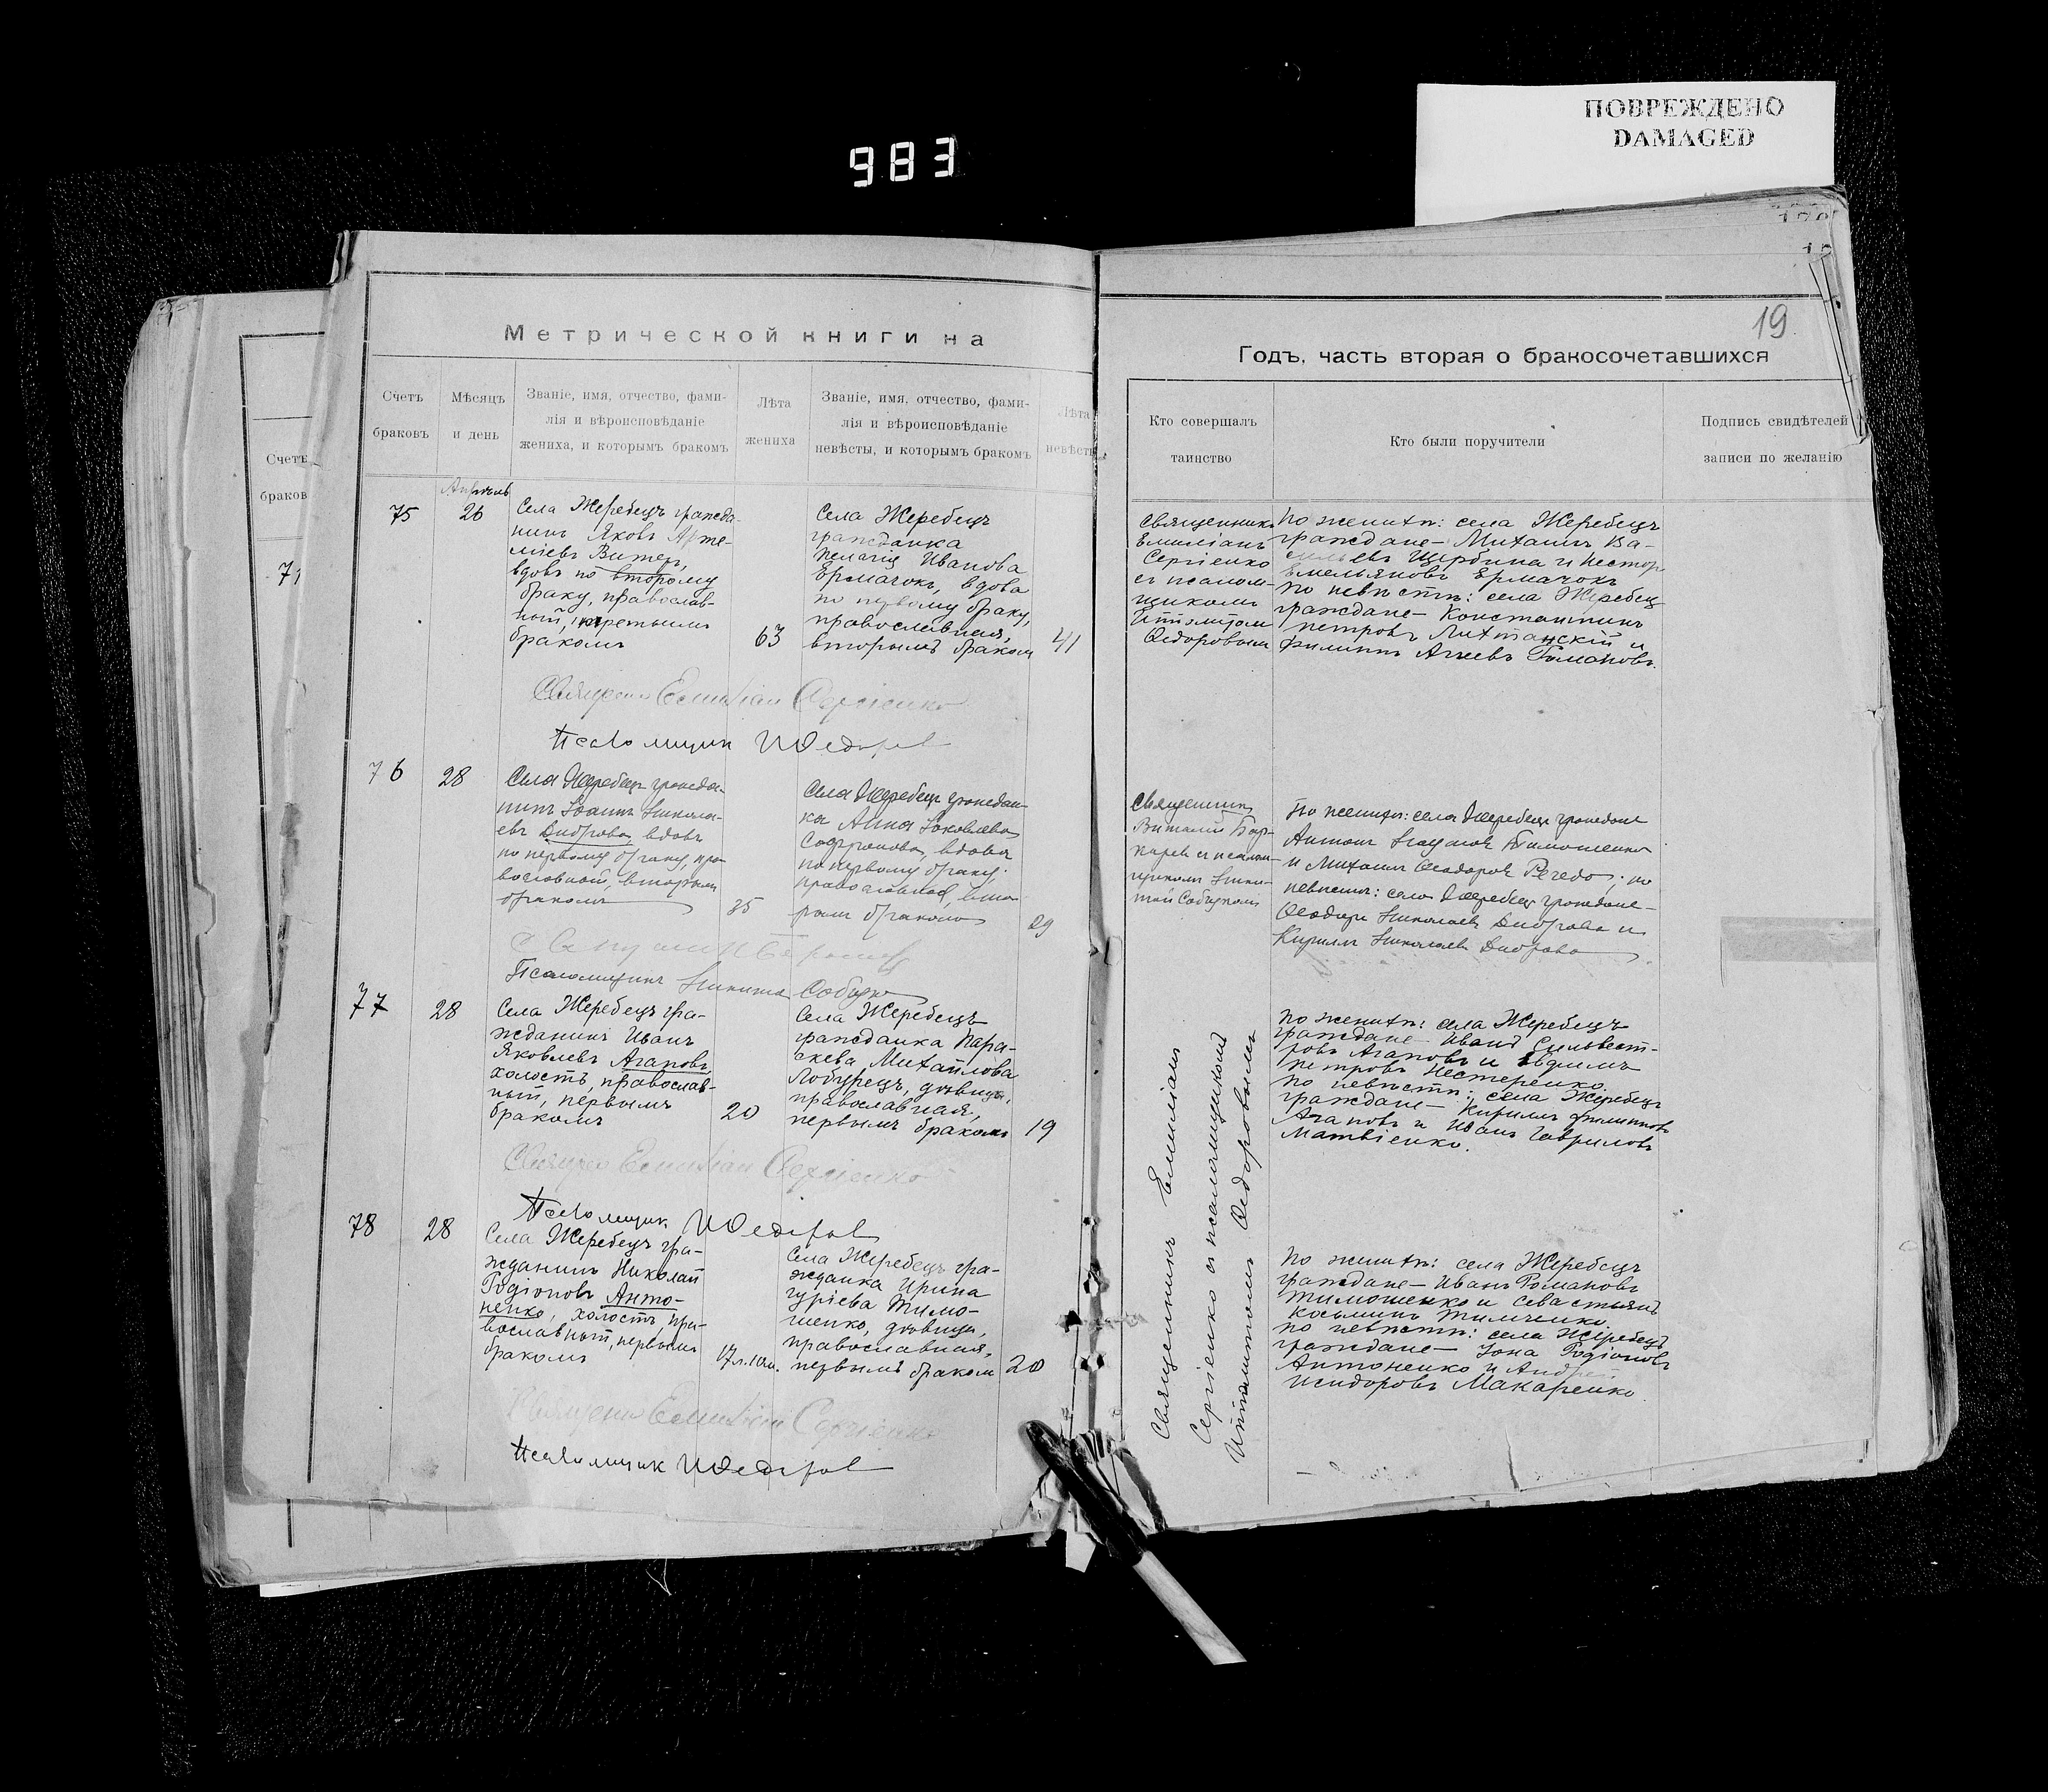 ПОВРЕЖДЕНО
DAMAGED
983
19
Метрической книги на
Годъ, часть вторая о бракосочетавшихся
Счетъ
браковъ
Мѣсяцъ
и день
Званіе, имя, отчество, фами-
лія и вѣроисповѣданіе
жениха, и которымъ бракомъ
Лѣта
жениха
Званіе, имя, отчество, фами-
лія и вѣроисповѣданіе
невѣсты, и которымъ бракомъ
Лѣта
невѣсты
Кто совершалъ
таинство
Кто были поручители
Подпись свидѣтелей
записи по желанію
Счетъ
браков
75
Апрѣль
26
Села Жеребецъ гражда-
нинъ Яковъ Арте-
міевъ Витер,
вдовъ по второму
браку, православ-
ный, третьимъ
бракомъ
63
Села Жеребецъ
гражданка
Пелагія Иванова
Ермачокъ, вдова
по первому браку,
православная,
вторымъ браком
41
Священникъ
Емиліанъ
Сергіенко
съ псалом-
щикомъ
Ѳедоровым
По женихѣ: села Жеребецъ
граждане – Михаилъ Ва-
сильевъ Щербина и Нестор
Емельяновъ Ермачокъ
по невѣстѣ: села Жеребец
граждане – Константинъ
Петровъ и
Филиппъ
Емиліан Сергіенко
Псаломщик
76
28
Села Жеребецъ гражда-
нинъ Іоаннъ Никола-
евъ Диброва, вдовъ
по первому браку, пра-
вославный, вторымъ
бракомъ
35
Села Жеребецъ граждан-
ка Анна Іаковлева
Софронова, вдова
по первому браку,
православная, вто-
рымъ бракомъ
29
Священникъ
Виталий
съ псалом-
щикомъ Ники-
той
По женихѣ: села Жеребецъ граждане
Антонъ Тимошенко
и Михаилъ Ѳеодоровъ; по
невѣстѣ: села Жеребецъ граждане –
Ѳеодоръ Николаевъ Диброва и
Кириллъ Николаевъ Диброва
Псаломщикъ Никита
77
28
Села Жеребецъ гра-
жданинъ Иванъ
Яковлевъ Агаповъ,
холостъ, православ-
ный, первымъ
бракомъ
20
Села Жеребецъ
гражданка Пара-
скева Михайлова
Лобурецъ, дѣвица,
православная,
первымъ бракомъ
19
Священникъ Емиліанъ
Сергіенко съ псаломщикомъ
Ѳедоровымъ
По женихѣ: села Жеребецъ
граждане – Иванъ Сильвест-
ровъ Агаповъ и Евдокимъ
Петровъ Нестеренко.
По невѣстѣ: села Жеребецъ
граждане – Кириллъ Филипповъ
Агаповъ и Иванъ Гавриловъ
Матвіенко.
Емиліан Сергіенко
Псаломщик
78
28
Села Жеребецъ гра-
жданинъ Николай
Родіоновъ Анто-
ненко, холостъ, пра-
вославный, первымъ
бракомъ
17 л. 10 м.
Села Жеребецъ гра-
жданка Ирина
Гуріева Тимо-
шенко, дѣвица,
православная,
первымъ браком
20
По женихѣ: села Жеребецъ
граждане – Иванъ Романовъ
Тимошенко и Севастьянъ
Косьминъ Тимченко.
По невѣстѣ: села Жеребецъ
граждане – Іона Родіоновъ
Антоненко и Андрей
Исидоровъ Макаренко
Емиліан Сергіенко
Псаломщик